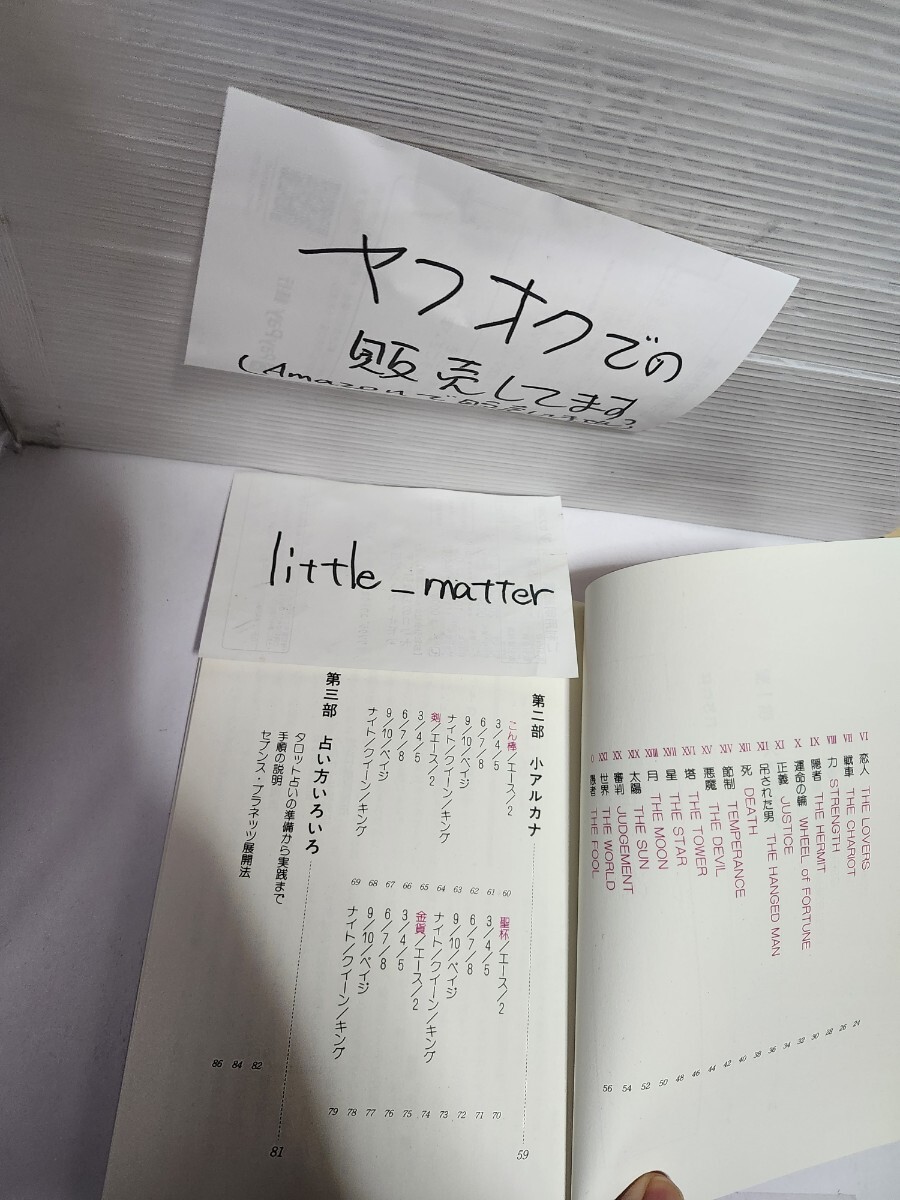 ヤフオクでの
販売してます
little_matter
VI 恋人 THE LOVERS 24
VII 戦車 THE CHARIOT 26
VIII 力 STRENGTH 28
IX 隠者 THE HERMIT 30
X 運命の輪 WHEEL of FORTUNE 32
XI 正義 JUSTICE 34
XII 吊された男 THE HANGED MAN 36
XIII 死 DEATH 38
XIV 節制 TEMPERANCE 40
XV 悪魔 THE DEVIL 42
XVI 塔 THE TOWER 44
XVII 星 THE STAR 46
XVIII 月 THE MOON 48
XIX 太陽 THE SUN 50
XX 審判 JUDGEMENT 52
XXI 世界 THE WORLD 54
0 愚者 THE FOOL 56
第二部 小アルカナ 59
こん棒/エース/2 60
3/4/5 61
6/7/8 62
9/10/ペイジ 63
ナイト/クイーン/キング 64
剣/エース/2 65
3/4/5 66
6/7/8 67
9/10/ペイジ 68
ナイト/クイーン/キング 69
聖杯/エース/2 70
3/4/5 71
6/7/8 72
9/10/ペイジ 73
ナイト/クイーン/キング 74
金貨/エース/2 75
3/4/5 76
6/7/8 77
9/10/ペイジ 78
ナイト/クイーン/キング 79
第三部 占い方いろいろ 81
タロット占いの準備から実践まで 82
手順の説明 84
セブンス・プラネッツ展開法 86